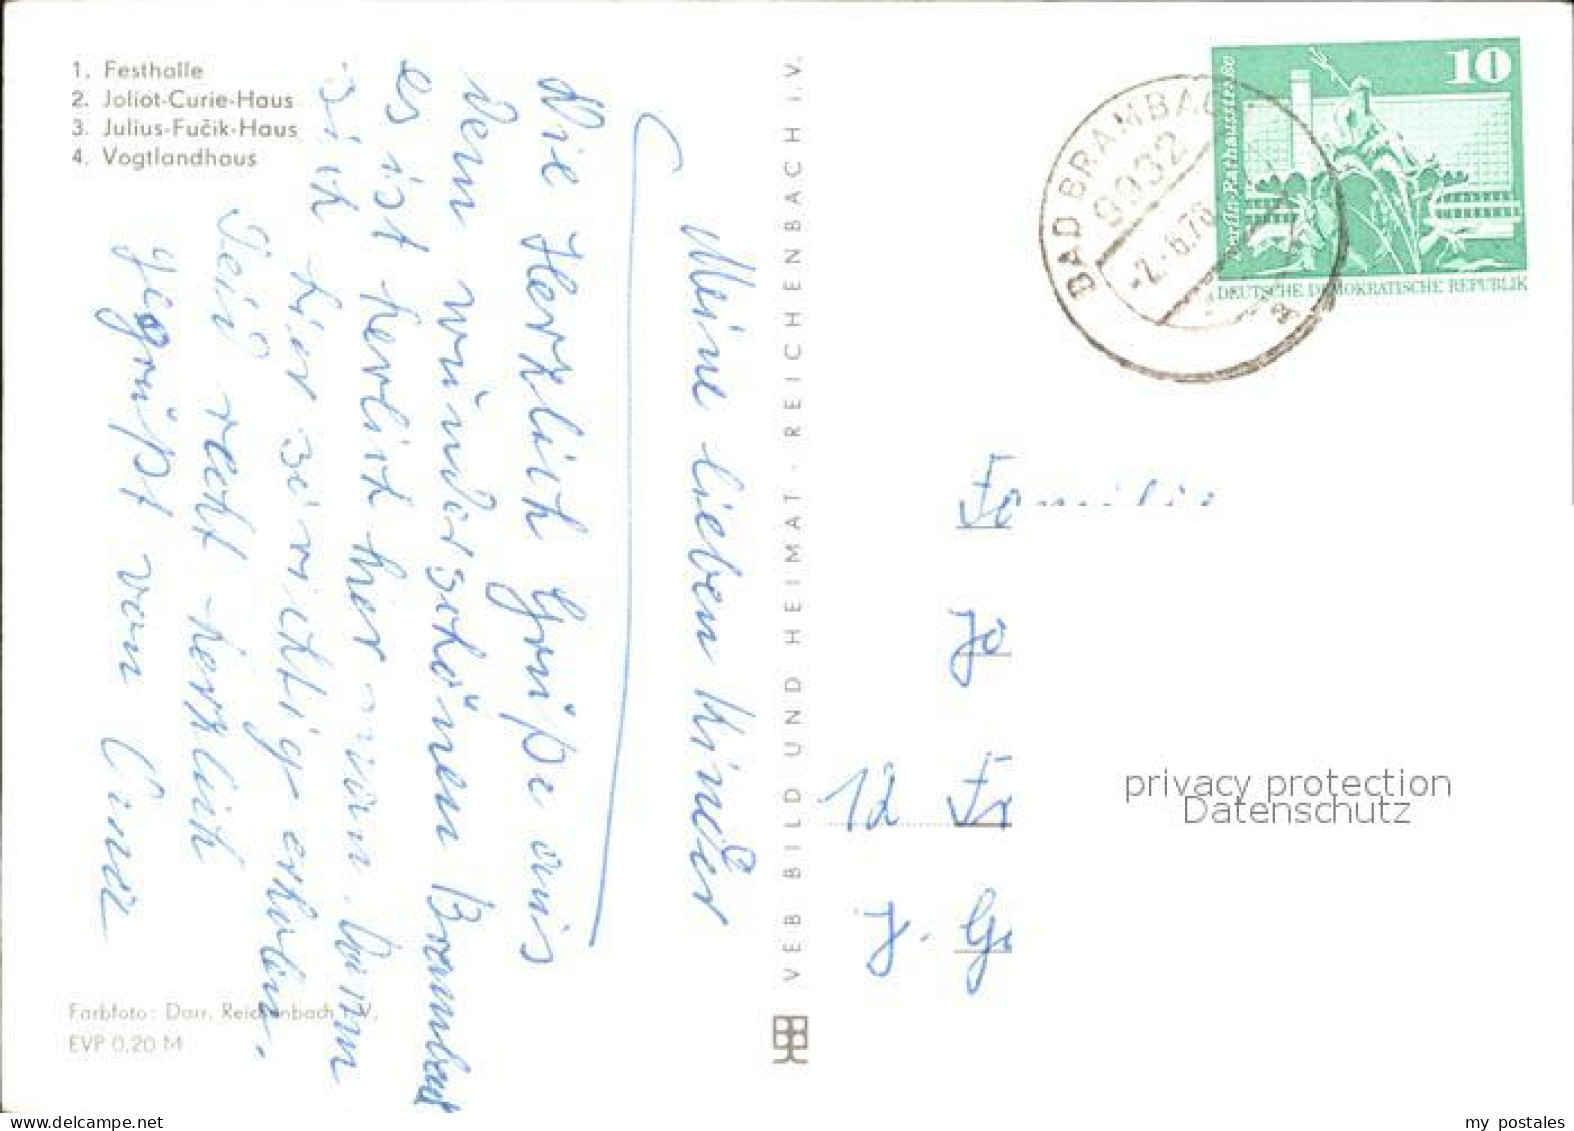 1. Festhalle
2. Joliot-Curie-Haus
3. Julius-Fučik-Haus
4. Vogtlandhaus
Meine lieben Kinder
Die Herzlich Grüße aus
dem wunderschönen Brambach
es ist herlich hier man kann
sich hier so richtige erholen.
Seid recht herzlich
gegrüßt von
Farbfoto: Darr, Reichenbach i. V.
EVP 0,20 M
VEB BILD UND HEIMAT · REICHENBACH I.V.
10
Berlin, Rathausstraße
DEUTSCHE DEMOKRATISCHE REPUBLIK
BAD BRAMBACH
9932
-2.-6.78
Familie
Jo
12 Fr
J. Ge
privacy protection
Datenschutz
www.delcampe.net
my_postales